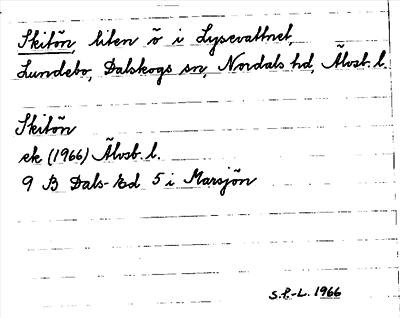 Skitön, liten ö i Lysevattnet,
Lundebo, Dalskogs sn, Nordals hd, Älvsb. l.
Skitön
ek (1966) Älvsb. l.
9 B Dals-Ed 5 i Marsjön
S.P.-L. 1966